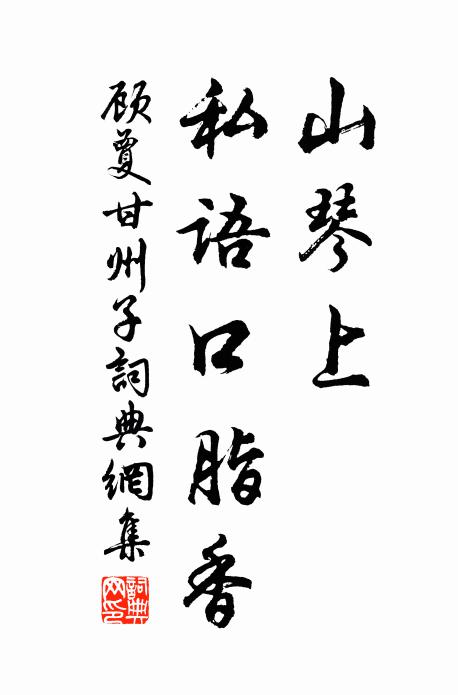 山琴上
私語口脂香
顾敻甘州子詞典網集
詞典网印